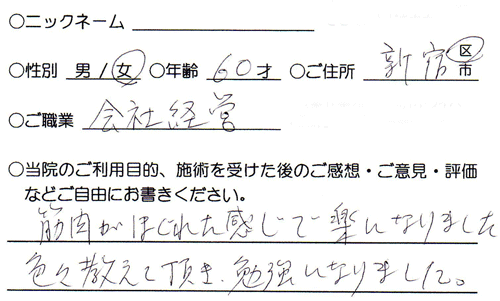 ○ニックネーム
○性別 男/女 ○年齢 60才 ○ご住所 新宿 区市
○ご職業 会社経営
○当院のご利用目的、施術を受けた後のご感想・ご意見・評価
などご自由にお書きください。
筋肉がほぐれた感じで楽になりました
色々教えて頂き、勉強になりました。